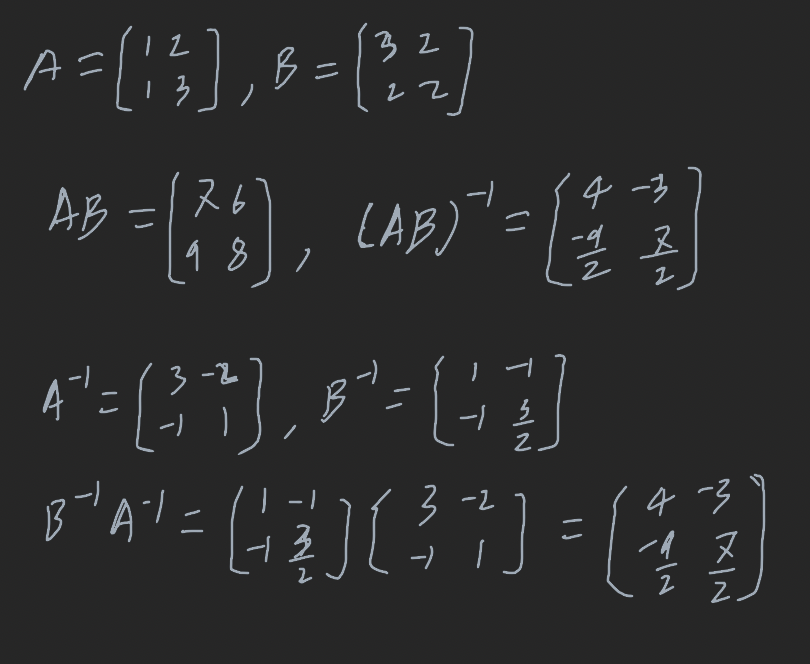 A = [1 2; 1 3], B = [3 2; 2 2]
AB = [7 6; 9 8], (AB)^-1 = [4 -3; -9/2 7/2]
A^-1 = [3 -2; -1 1], B^-1 = [1 -1; -1 3/2]
B^-1 A^-1 = [1 -1; -1 3/2] [3 -2; -1 1] = [4 -3; -9/2 7/2]